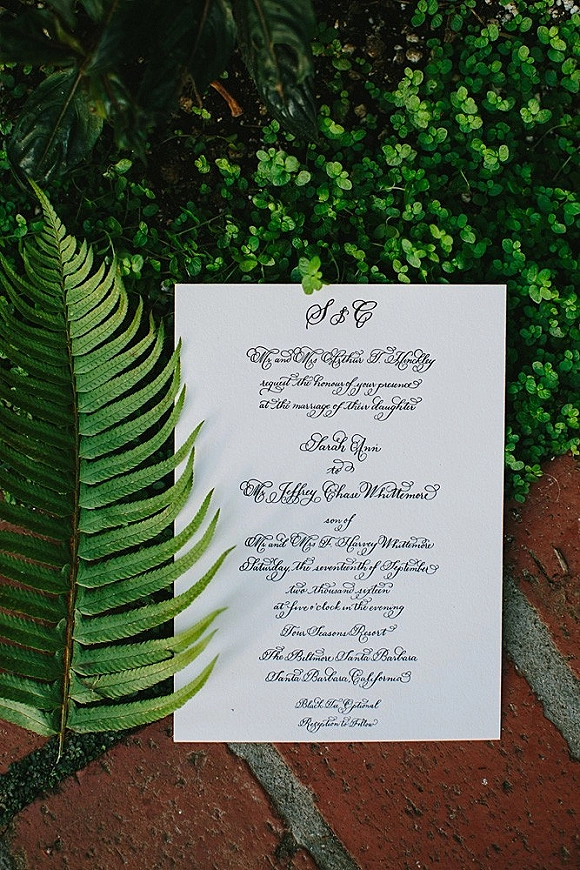 S & C
Mr. and Mrs. Arthur T. Hinckley
request the honour of your presence
at the marriage of their daughter
Sarah Ann
to
Mr. Jeffrey Chase Whittemore
son of
Mr. and Mrs. F. Harvey Whittemore
Saturday, the seventeenth of September
two thousand sixteen
at five o'clock in the evening
Four Seasons Resort
The Biltmore Santa Barbara
Santa Barbara, California
Black Tie Optional
Reception to Follow